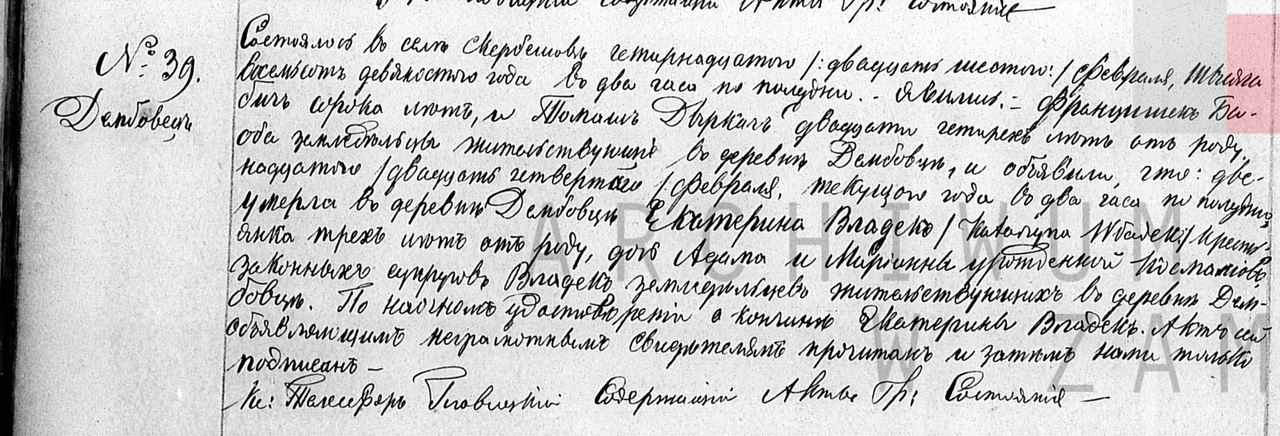 Содержащій Акты Гр: Состоянія
№ 39.
Дембовецъ
Состоялось въ селѣ Скербешовѣ четырнадцатого /: двадцать шестого :/ Февраля, тысяча
восемьсотъ девяностого года въ два часа по полудни. - Явились: - Францишекъ Ба-
бичъ сорока лѣтъ, и Томашъ Дыркачъ двадцати четырехъ лѣтъ отъ роду,
оба земледѣльцы жительствующіе въ деревнѣ Дембовцѣ, и объявили, что: две-
надцатого /двадцать четвертого/ Февраля, текущого года въ два часа по полудни,
умерла въ деревнѣ Дембовцѣ Екатерина Владекъ / Katarzyna Władek / кресть-
янка трехъ лѣтъ отъ роду, дочь Адама и Маріанны урожденной
законныхъ супруговъ Владекъ земледѣльцевъ жительствующихъ въ деревнѣ Дем-
бовцѣ. По настномъ удостовѣреніи о кончинѣ Екатерины Владекъ. Актъ сей
объявляющимъ неграмотнымъ свидѣтелямъ прочитанъ и затѣмъ нами только
подписанъ —
Кс: Телесфоръ Содержащій Акты Гр: Состоянія —
ARCHIWUM
W ZAM